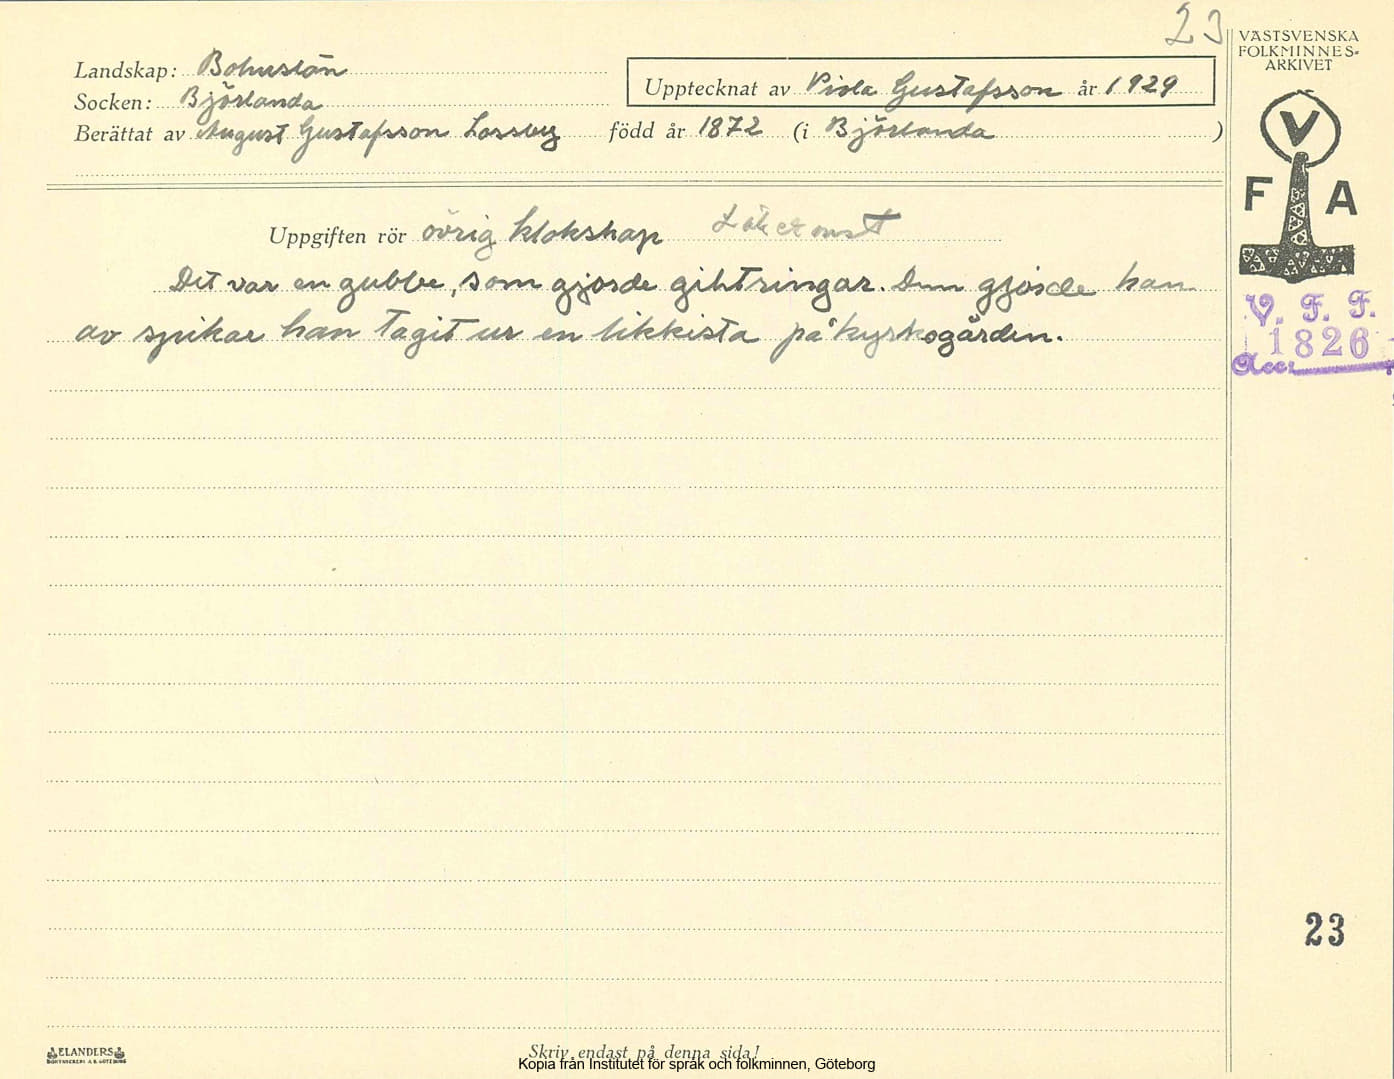 23
VÄSTSVENSKA
FOLKMINNES-
ARKIVET
V
F A
V. F. F.
1826
Acc:
Landskap: Bohuslän
Socken: Björlanda
Upptecknat av Viola Gustafsson år 1929
Berättat av August Gustafsson Lossby född år 1872 (i Björlanda )
Uppgiften rör övrig klokskap Läkekonst
Det var en gubbe, som gjorde gihtringar. Dem gjorde han
av spikar han tagit ur en likkista på kyrkogården.
23
ELANDERS
BOKTRYCKERI A.B. GÖTEBORG
Skriv endast på denna sida!
Kopia från Institutet för språk och folkminnen, Göteborg